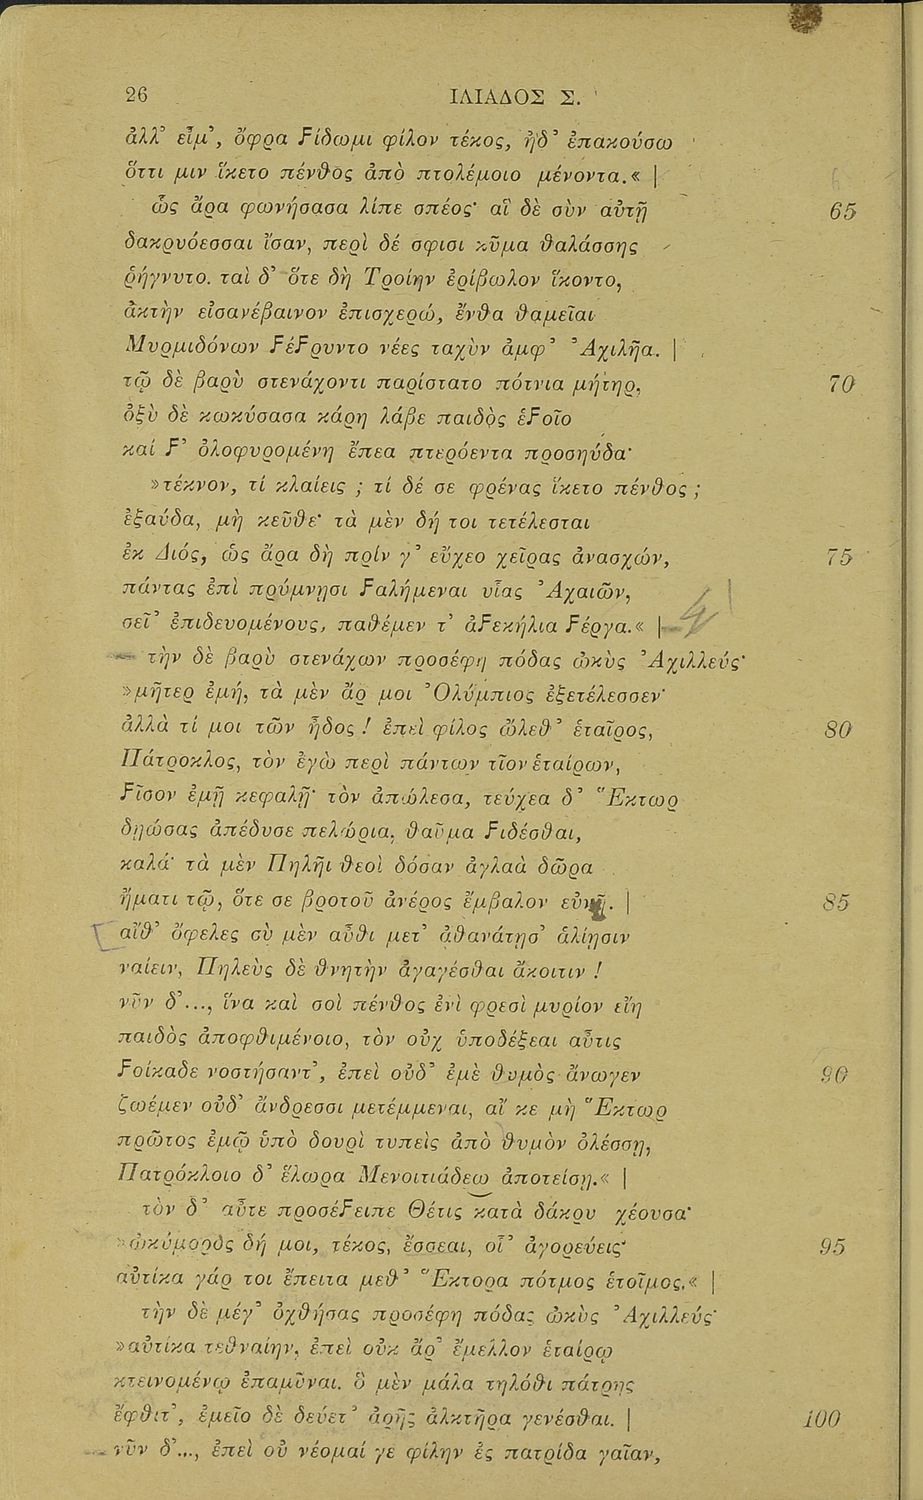 26 ΙΛΙΑΔΟΣ Σ.
ἀλλ’ εἶμ’, ὄφρα Ϝίδωμι φίλον τέκος, ἠδ’ ἐπακούσω
ὅττι μιν ἵκετο πένθος ἀπὸ πτολέμοιο μένοντα.« |
ὣς ἄρα φωνήσασα λίπε σπέος· αἳ δὲ σὺν αὐτῇ 65
δακρυόεσσαι ἴσαν, περὶ δέ σφισι κῦμα θαλάσσης
ῥήγνυτο. ταὶ δ’ ὅτε δὴ Τροίην ἐρίβωλον ἵκοντο,
ἀκτὴν εἰσανέβαινον ἐπισχερώ, ἔνθα θαμεῖαι
Μυρμιδόνων ϜέϜρυντο νέες ταχὺν ἀμφ’ Ἀχιλῆα. |
τῷ δὲ βαρὺ στενάχοντι παρίστατο πότνια μήτηρ, 70
ὀξὺ δὲ κωκύσασα κάρη λάβε παιδὸς ἑϜοῖο
καί Ϝ’ ὀλοφυρομένη ἔπεα πτερόεντα προσηύδα·
»τέκνον, τί κλαίεις ; τί δέ σε φρένας ἵκετο πένθος ;
ἐξαύδα, μὴ κεῦθε· τὰ μὲν δή τοι τετέλεσται
ἐκ Διός, ὡς ἄρα δὴ πρίν γ’ εὔχεο χεῖρας ἀνασχών, 75
πάντας ἐπὶ πρύμνῃσι Ϝαλήμεναι υἷας Ἀχαιῶν,
σεῖ’ ἐπιδευομένους, παθέμεν τ’ ἀϜεκήλια Ϝέργα.« |
τὴν δὲ βαρὺ στενάχων προσέφη πόδας ὠκὺς Ἀχιλλεύς·
»μῆτερ ἐμή, τὰ μὲν ἄρ μοι Ὀλύμπιος ἐξετέλεσσεν·
ἀλλὰ τί μοι τῶν ἦδος ! ἐπεὶ φίλος ὤλεθ’ ἑταῖρος, 80
Πάτροκλος, τὸν ἐγὼ περὶ πάντων τῖον ἑταίρων,
Ϝῖσον ἐμῇ κεφαλῇ· τὸν ἀπώλεσα, τεύχεα δ’ Ἕκτωρ
δῃώσας ἀπέδυσε πελώρια, θαῦμα Ϝιδέσθαι,
καλά· τὰ μὲν Πηλῆι θεοὶ δόσαν ἀγλαὰ δῶρα
ἤματι τῷ, ὅτε σε βροτοῦ ἀνέρος ἔμβαλον εὐνῇ. | 85
αἴθ’ ὄφελες σὺ μὲν αὖθι μετ’ ἀθανάτῃσ’ ἁλίῃσιν
ναίειν, Πηλεὺς δὲ θνητὴν ἀγαγέσθαι ἄκοιτιν !
νῦν δ’..., ἵνα καὶ σοὶ πένθος ἐνὶ φρεσὶ μυρίον εἴη
παιδὸς ἀποφθιμένοιο, τὸν οὐχ ὑποδέξεαι αὖτις
Ϝοίκαδε νοστήσαντ’, ἐπεὶ οὐδ’ ἐμὲ θυμὸς ἄνωγεν 90
ζωέμεν οὐδ’ ἄνδρεσσι μετέμμεναι, αἴ κε μὴ Ἕκτωρ
πρῶτος ἐμῷ ὑπὸ δουρὶ τυπεὶς ἀπὸ θυμὸν ὀλέσσῃ,
Πατρόκλοιο δ’ ἕλωρα Μενοιτιάδεω ἀποτείσῃ.« |
τὸν δ’ αὖτε προσέϜειπε Θέτις κατὰ δάκρυ χέουσα·
»ὠκύμορος δή μοι, τέκος, ἔσσεαι, οἷ’ ἀγορεύεις· 95
αὐτίκα γάρ τοι ἔπειτα μεθ’ Ἕκτορα πότμος ἑτοῖμος.« |
τὴν δὲ μέγ’ ὀχθήσας προσέφη πόδας ὠκὺς Ἀχιλλεύς·
»αὐτίκα τεθναίην, ἐπεὶ οὐκ ἄρ’ ἔμελλον ἑταίρῳ
κτεινομένῳ ἐπαμῦναι. ὃ μὲν μάλα τηλόθι πάτρης
ἔφθιτ’, ἐμεῖο δὲ δεύετ’ ἀρῆς ἀλκτῆρα γενέσθαι. | 100
νῦν δ’..., ἐπεὶ οὐ νέομαί γε φίλην ἐς πατρίδα γαῖαν,